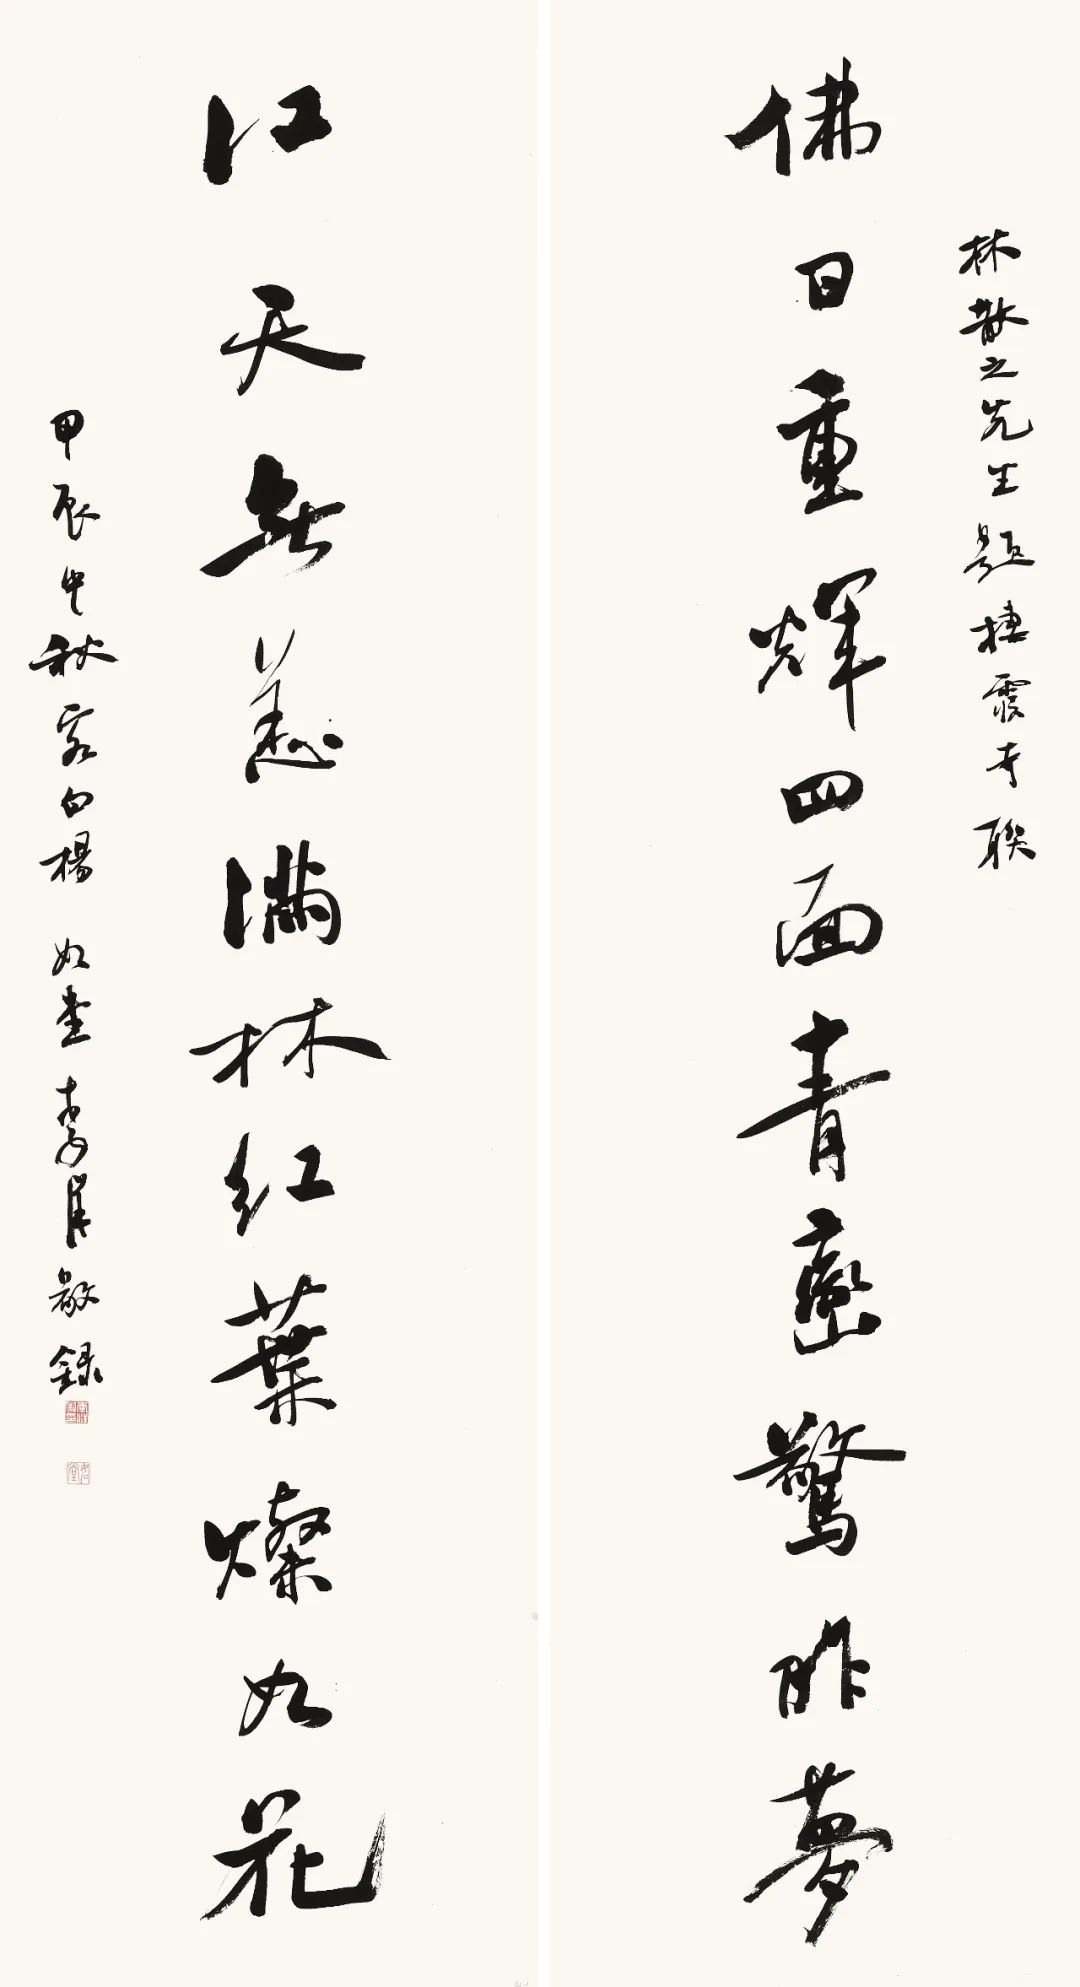 林散之先生題棲霞寺聯
佛日重輝四面青巒驚昨夢
江天無恙滿林紅葉燦如花
甲辰中秋客白楊 如堂 李 敬錄
如堂